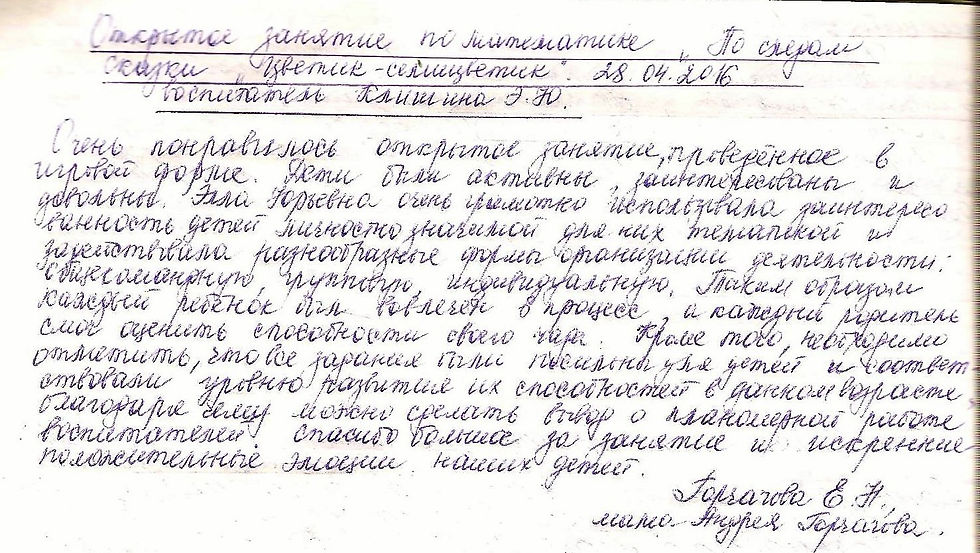 Открытое занятие по математике „По следам
сказки „Цветик-семицветик". 28.04.2016
воспитатель Клишина Э.Ю.
Очень понравилось открытое занятие, проведённое в
игровой форме. Дети были активны, заинтересованы и
довольны. Элла Юрьевна очень грамотно использовала заинтересо
ванность детей личностно значимой для них тематикой и
задействовала разнообразные формы организации деятельности:
общекомандную, групповую, индивидуальную. Таким образом
каждый ребёнок был вовлечён в процесс, а каждый родитель
смог оценить способности своего чада. Кроме того, необходимо
отметить, что все задания были посильны для детей и соответ
ствовали уровню развития их способностей в данном возрасте,
благодаря чему можно сделать вывод о планомерной работе
воспитателей. Спасибо большое за занятие и искренние
положительные эмоции наших детей.
Горчагова Е.Н.,
мама Андрея Горчагова.